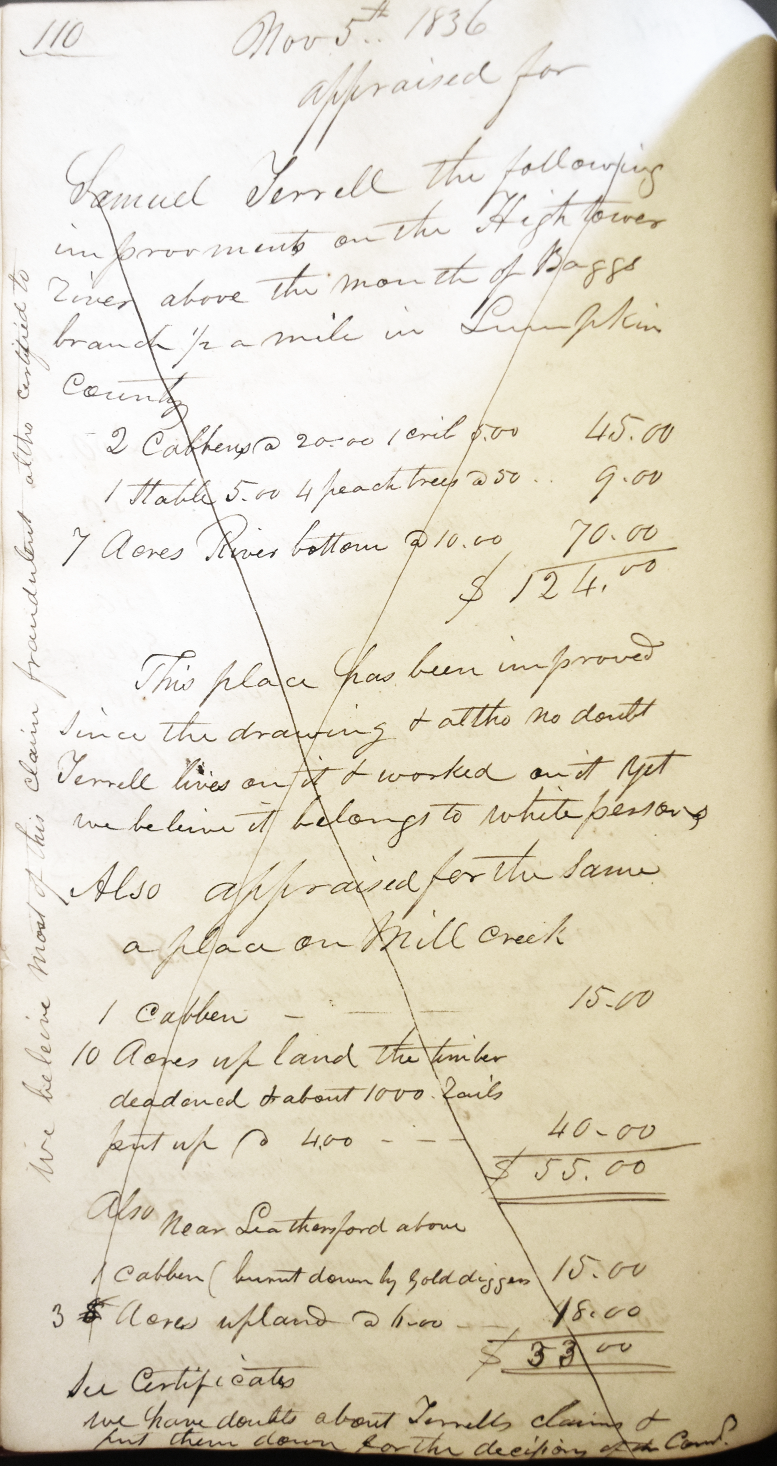 110
Nov 5th 1836
appraised for
Samuel Terrell the following
improovments on the Hightower
River above the mouth of Baggs
branch 1/2 a mile in Lumpkin
County
2 Cabbens @ 20.00 1 crib 5.00 45.00
1 Stable 5.00 4 peach trees @ 50 .. 9.00
7 Acres River bottom @ 10.00 70.00
$ 124.00
This place has been improved
since the drawing & altho no doubt
Terrell lives on it & worked on it yet
we beleive it belongs to white persons
Also appraised for the same
a place on Mill creek
1 Cabben - 15.00
10 Acres up land the timber
deadened & about 1000 Rails
put up @ 4.00 - - - 40.00
$ 55.00
Also Near Leathersford above
1 Cabben (burnt down by Gold diggers 15.00
3 Acres upland @ 6.00 18.00
$ 33.00
See Certificates
we have doubts about Terrells claims &
put them down for the decision of the Comrs.
We beleive most of this claim fraudulent altho certified to